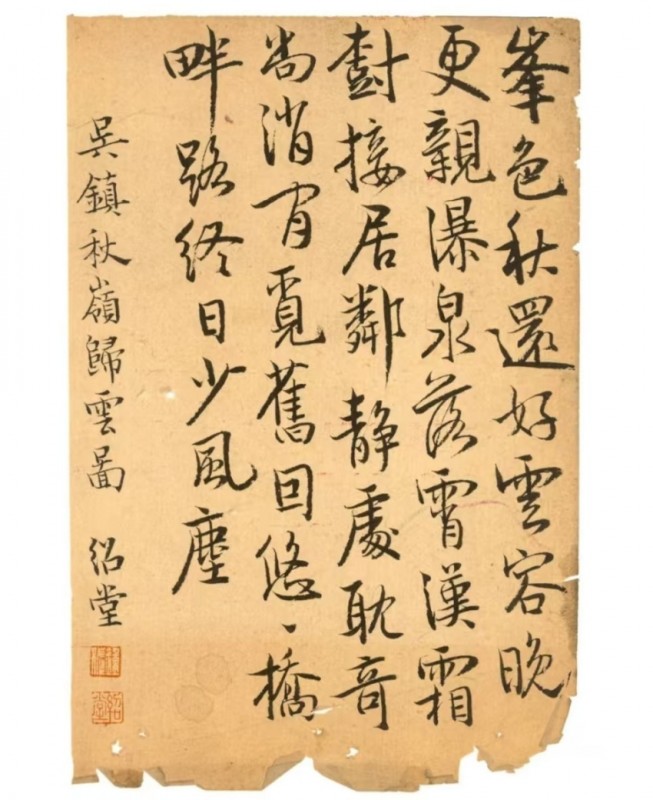 峯色秋還好雲容晚
更親瀑泉落霄漢霜
樹接居鄰静處耽奇
尚消覓舊囙悠、橋
畔路終日少風塵
吳鎮秋嶺歸雲圖 紹堂
紹堂